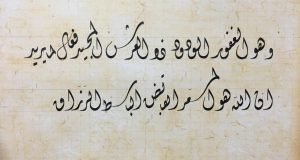 وهو الغفور الودود ذو العرش المجيد فعال لما يريد
ان الله هو المسعر القابض الباسط الرزاق